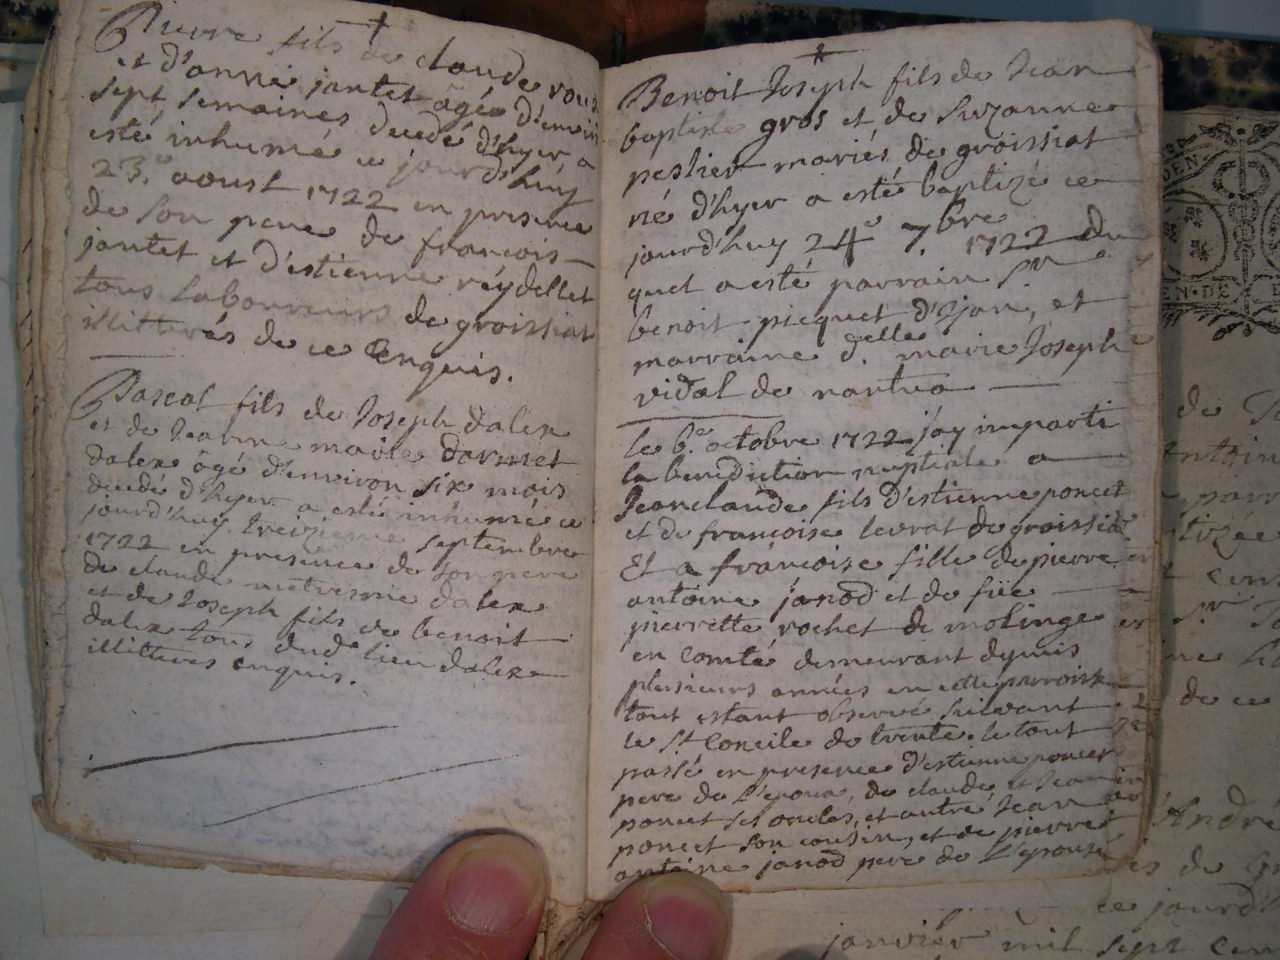 Pierre fils de claude roux
et d'anne jantet âgé d'environ
sept semaines decedé d'hyer a
esté inhumé ce jourd'huy
23.e aoust 1722 en presence
de son pere de francois
jantet et d'estienne reydellet
tous laboureurs de groissiat
illitterés de ce Enquis.
Pascal fils de Joseph dalex
et de Jeanne marie dormet
dalex âgé d'environ six mois
decedé d'hyer a esté inhumé ce
jourd'huy treizieme septembre
1722 en presence de son pere
de claude dalex
et de Joseph fils de benoit
dalex tous dud.t lieu dalex
illitteres enquis.
Benoit Joseph fils de Jean
baptiste gros et de Suzanne
peslier mariés de groissiat
né d'hyer a esté baptizé ce
jourd'huy 24e 7.bre 1722 du
quel a esté parrain Sr
benoit picquet d'Ijan, et
marraine d.elle marie Joseph
vidal de nantua
le 6.e octobre 1722 j'ay imparti
la benediction nuptiale a
Jeanclaude fils d'estienne poncet
et de francoise levrat de groissiat
Et a francoise fille de pierre
antoine janod et de füe
pierrette rochet de molinge
en Comté demeurant depuis
plusieurs années en cette parroisse
tout estant observé suivant
le St Concile de trente. le tout
passé en presence d'estienne poncet
pere de l'epoux, de claude et Jean
poncet ses oncles, et autre Jean
poncet son cousin, et de pierre
antoine janod pere de l'epouse
de
parr
tizée
Sr
de ce
André
de
ce jourd
janvier mil sept cent